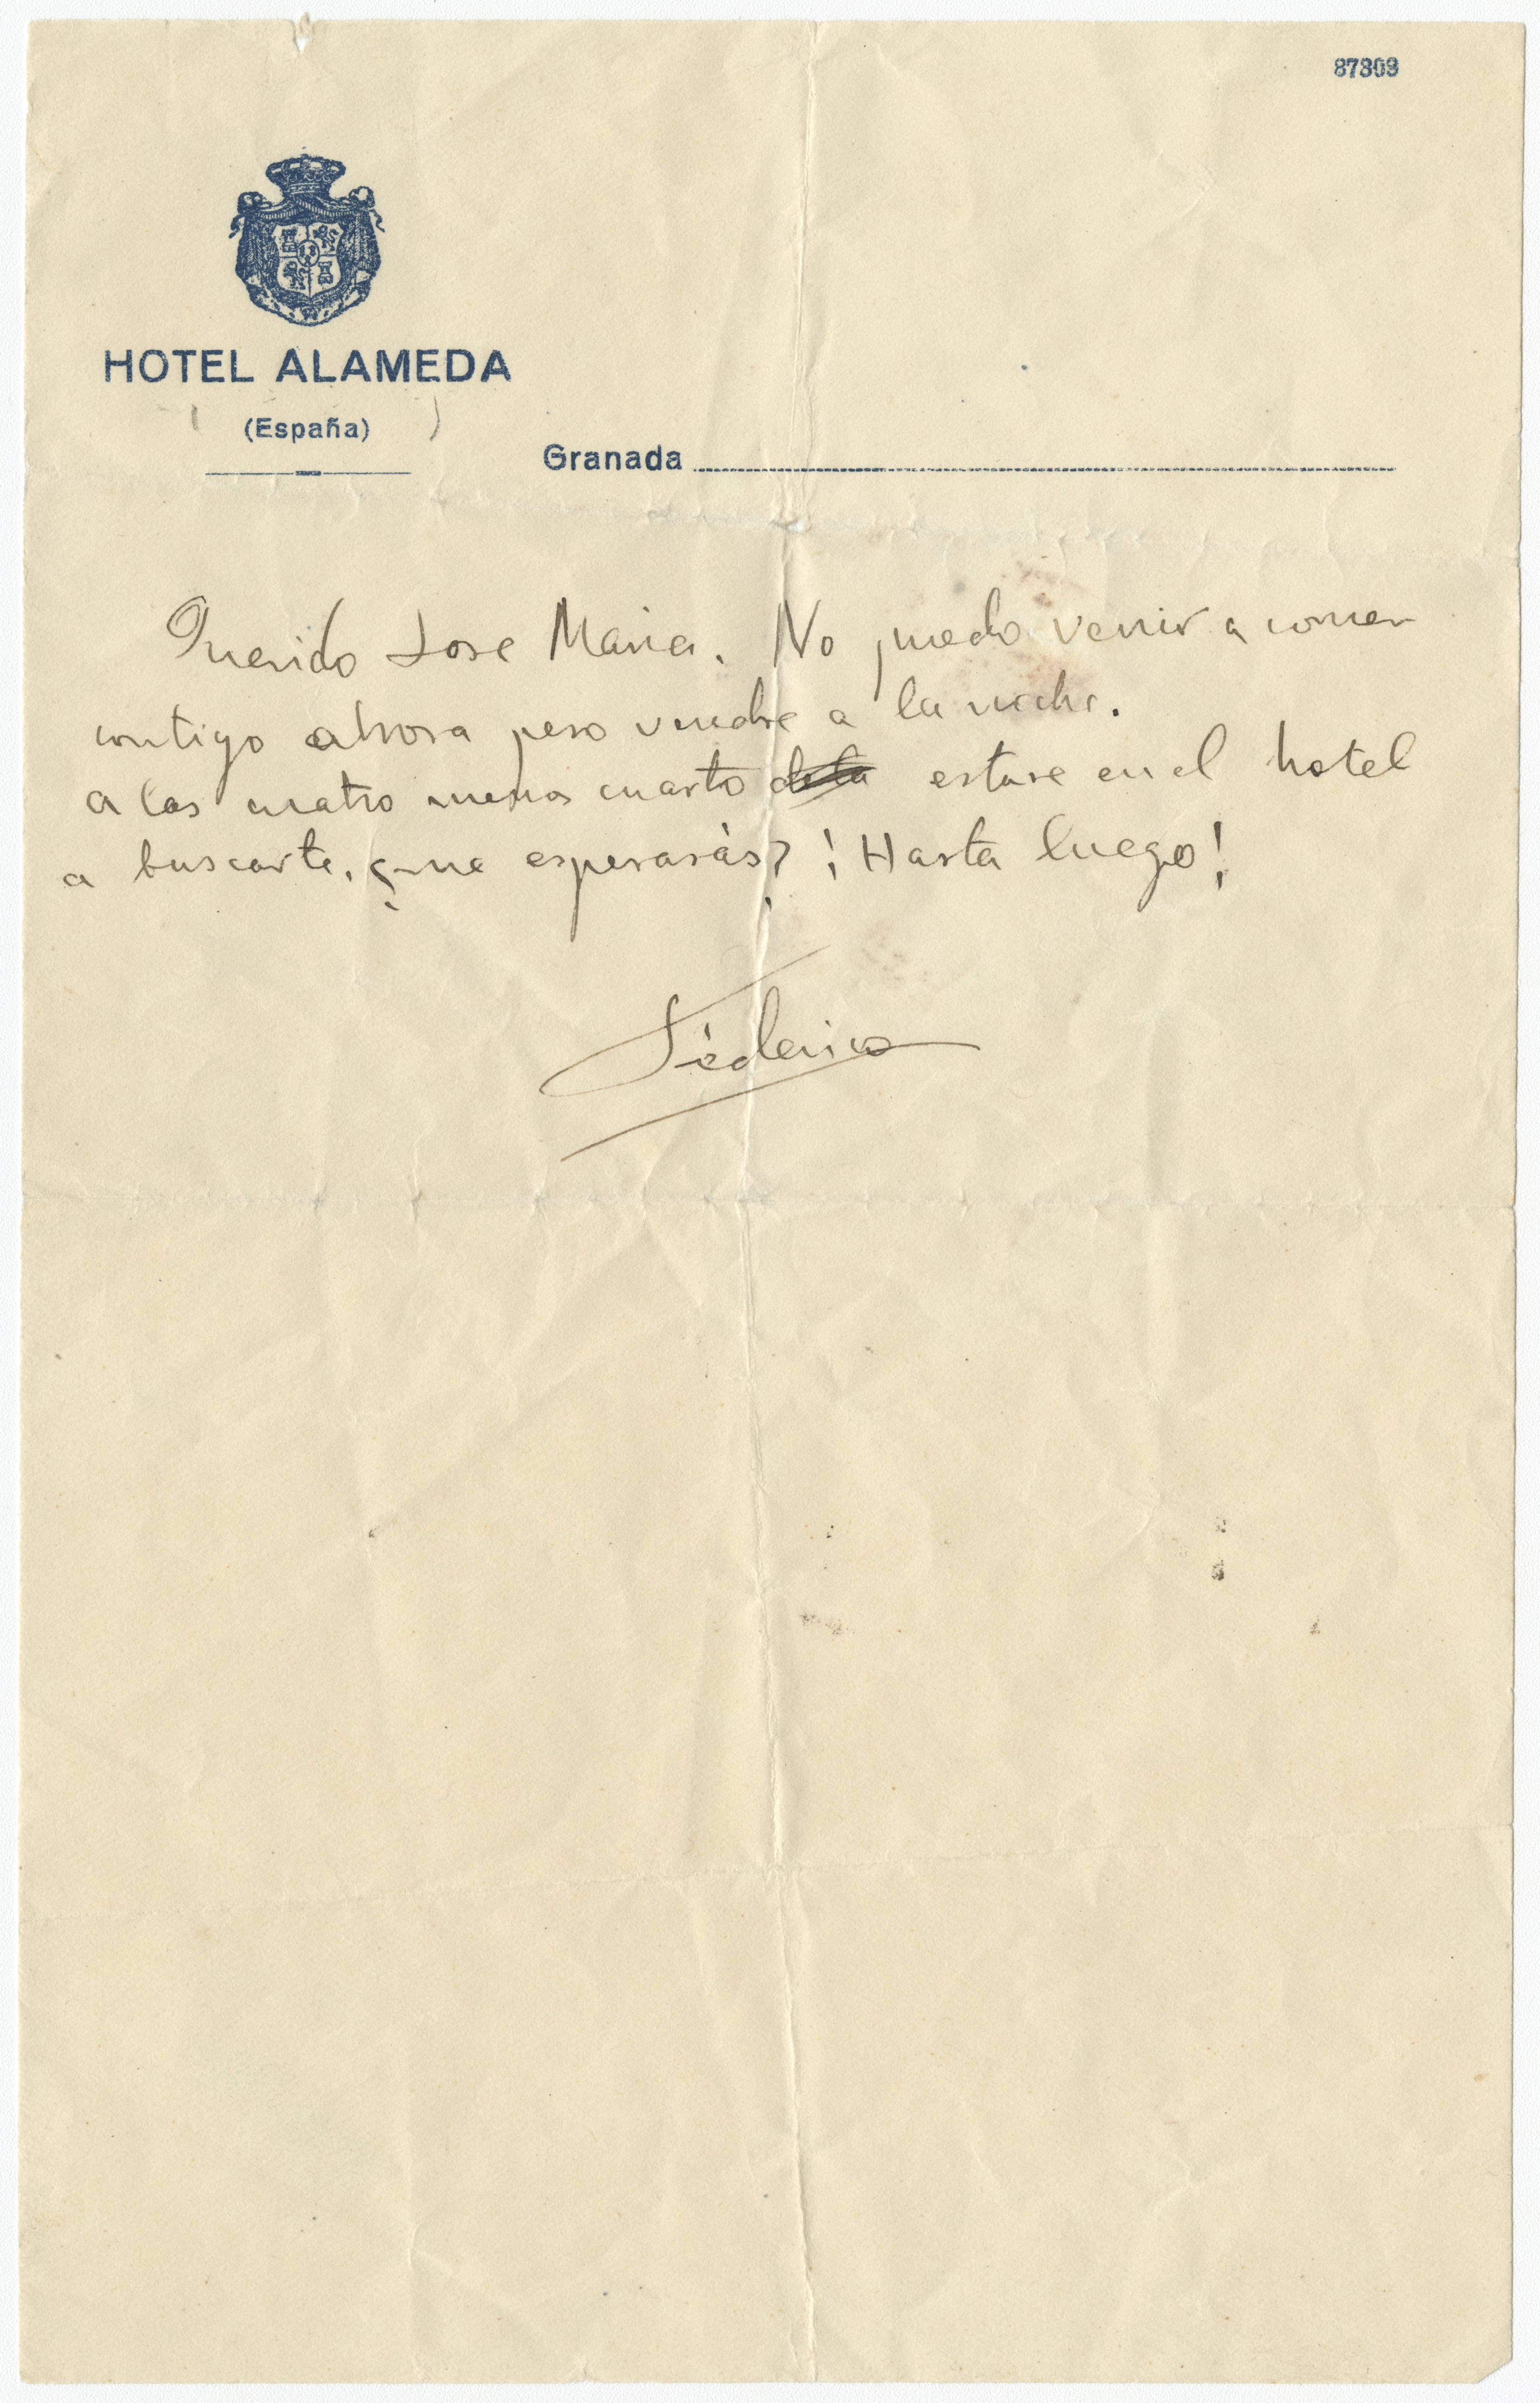 87309
HOTEL ALAMEDA
(España)
Granada
Querido Jose Maria. No puedo venir a comer
contigo ahora pero vendre a la noche.
a las cuatro menos cuarto de la estare en el hotel
a buscarte, ¿me esperarás? ¡Hasta luego!
Féderico